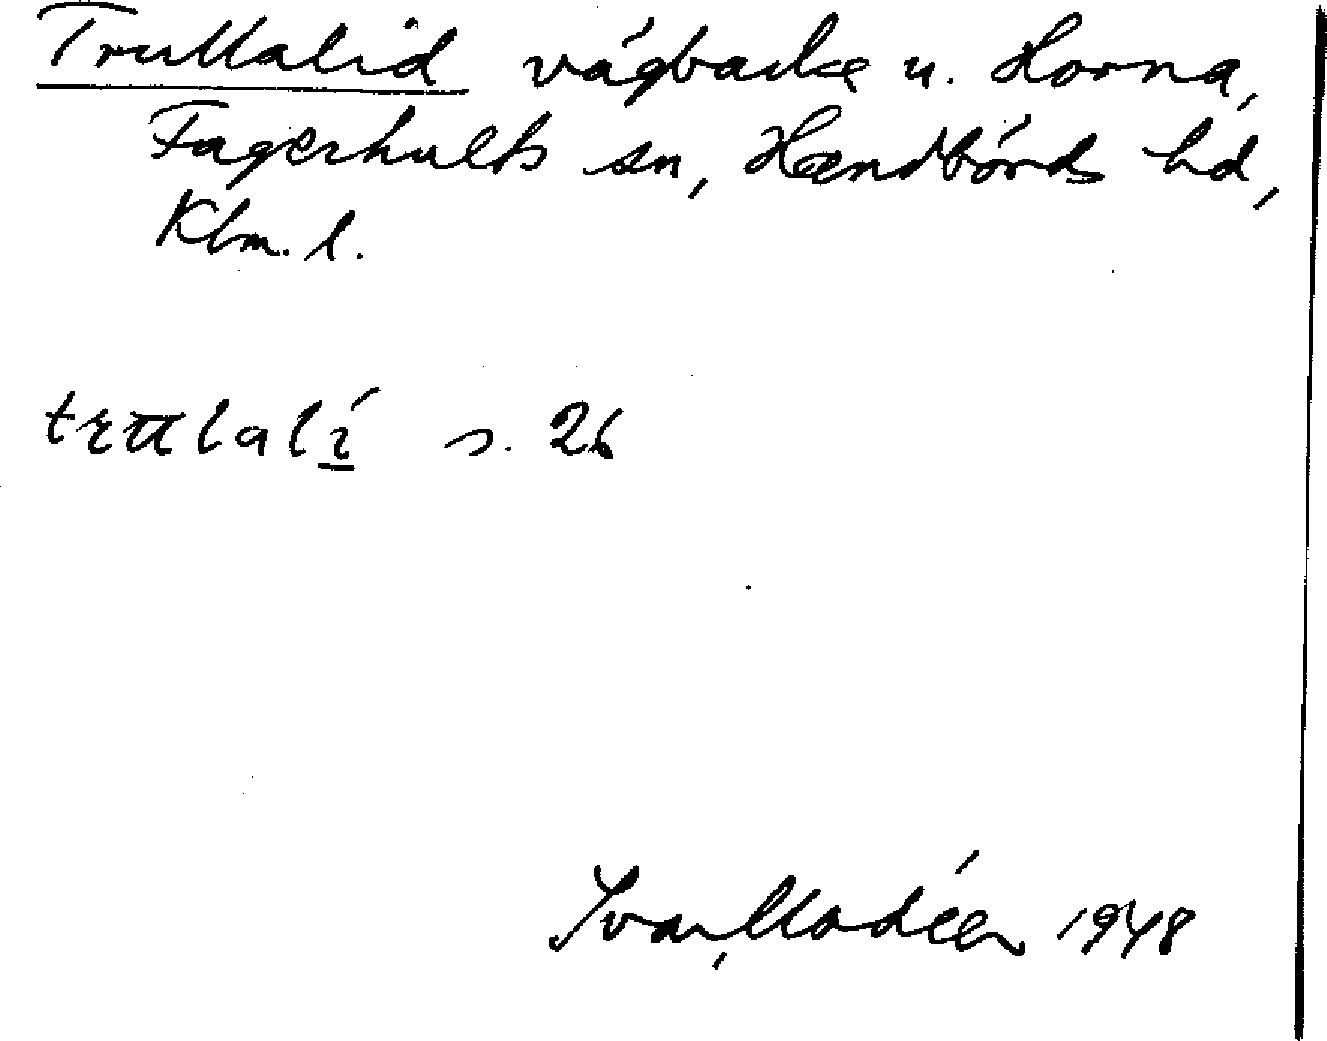 Trullalid vägbacke u. Horna,
Fagerhults sn, Handbörds hd,
Klm. l.
s. 26
Ivar Modéer 1948